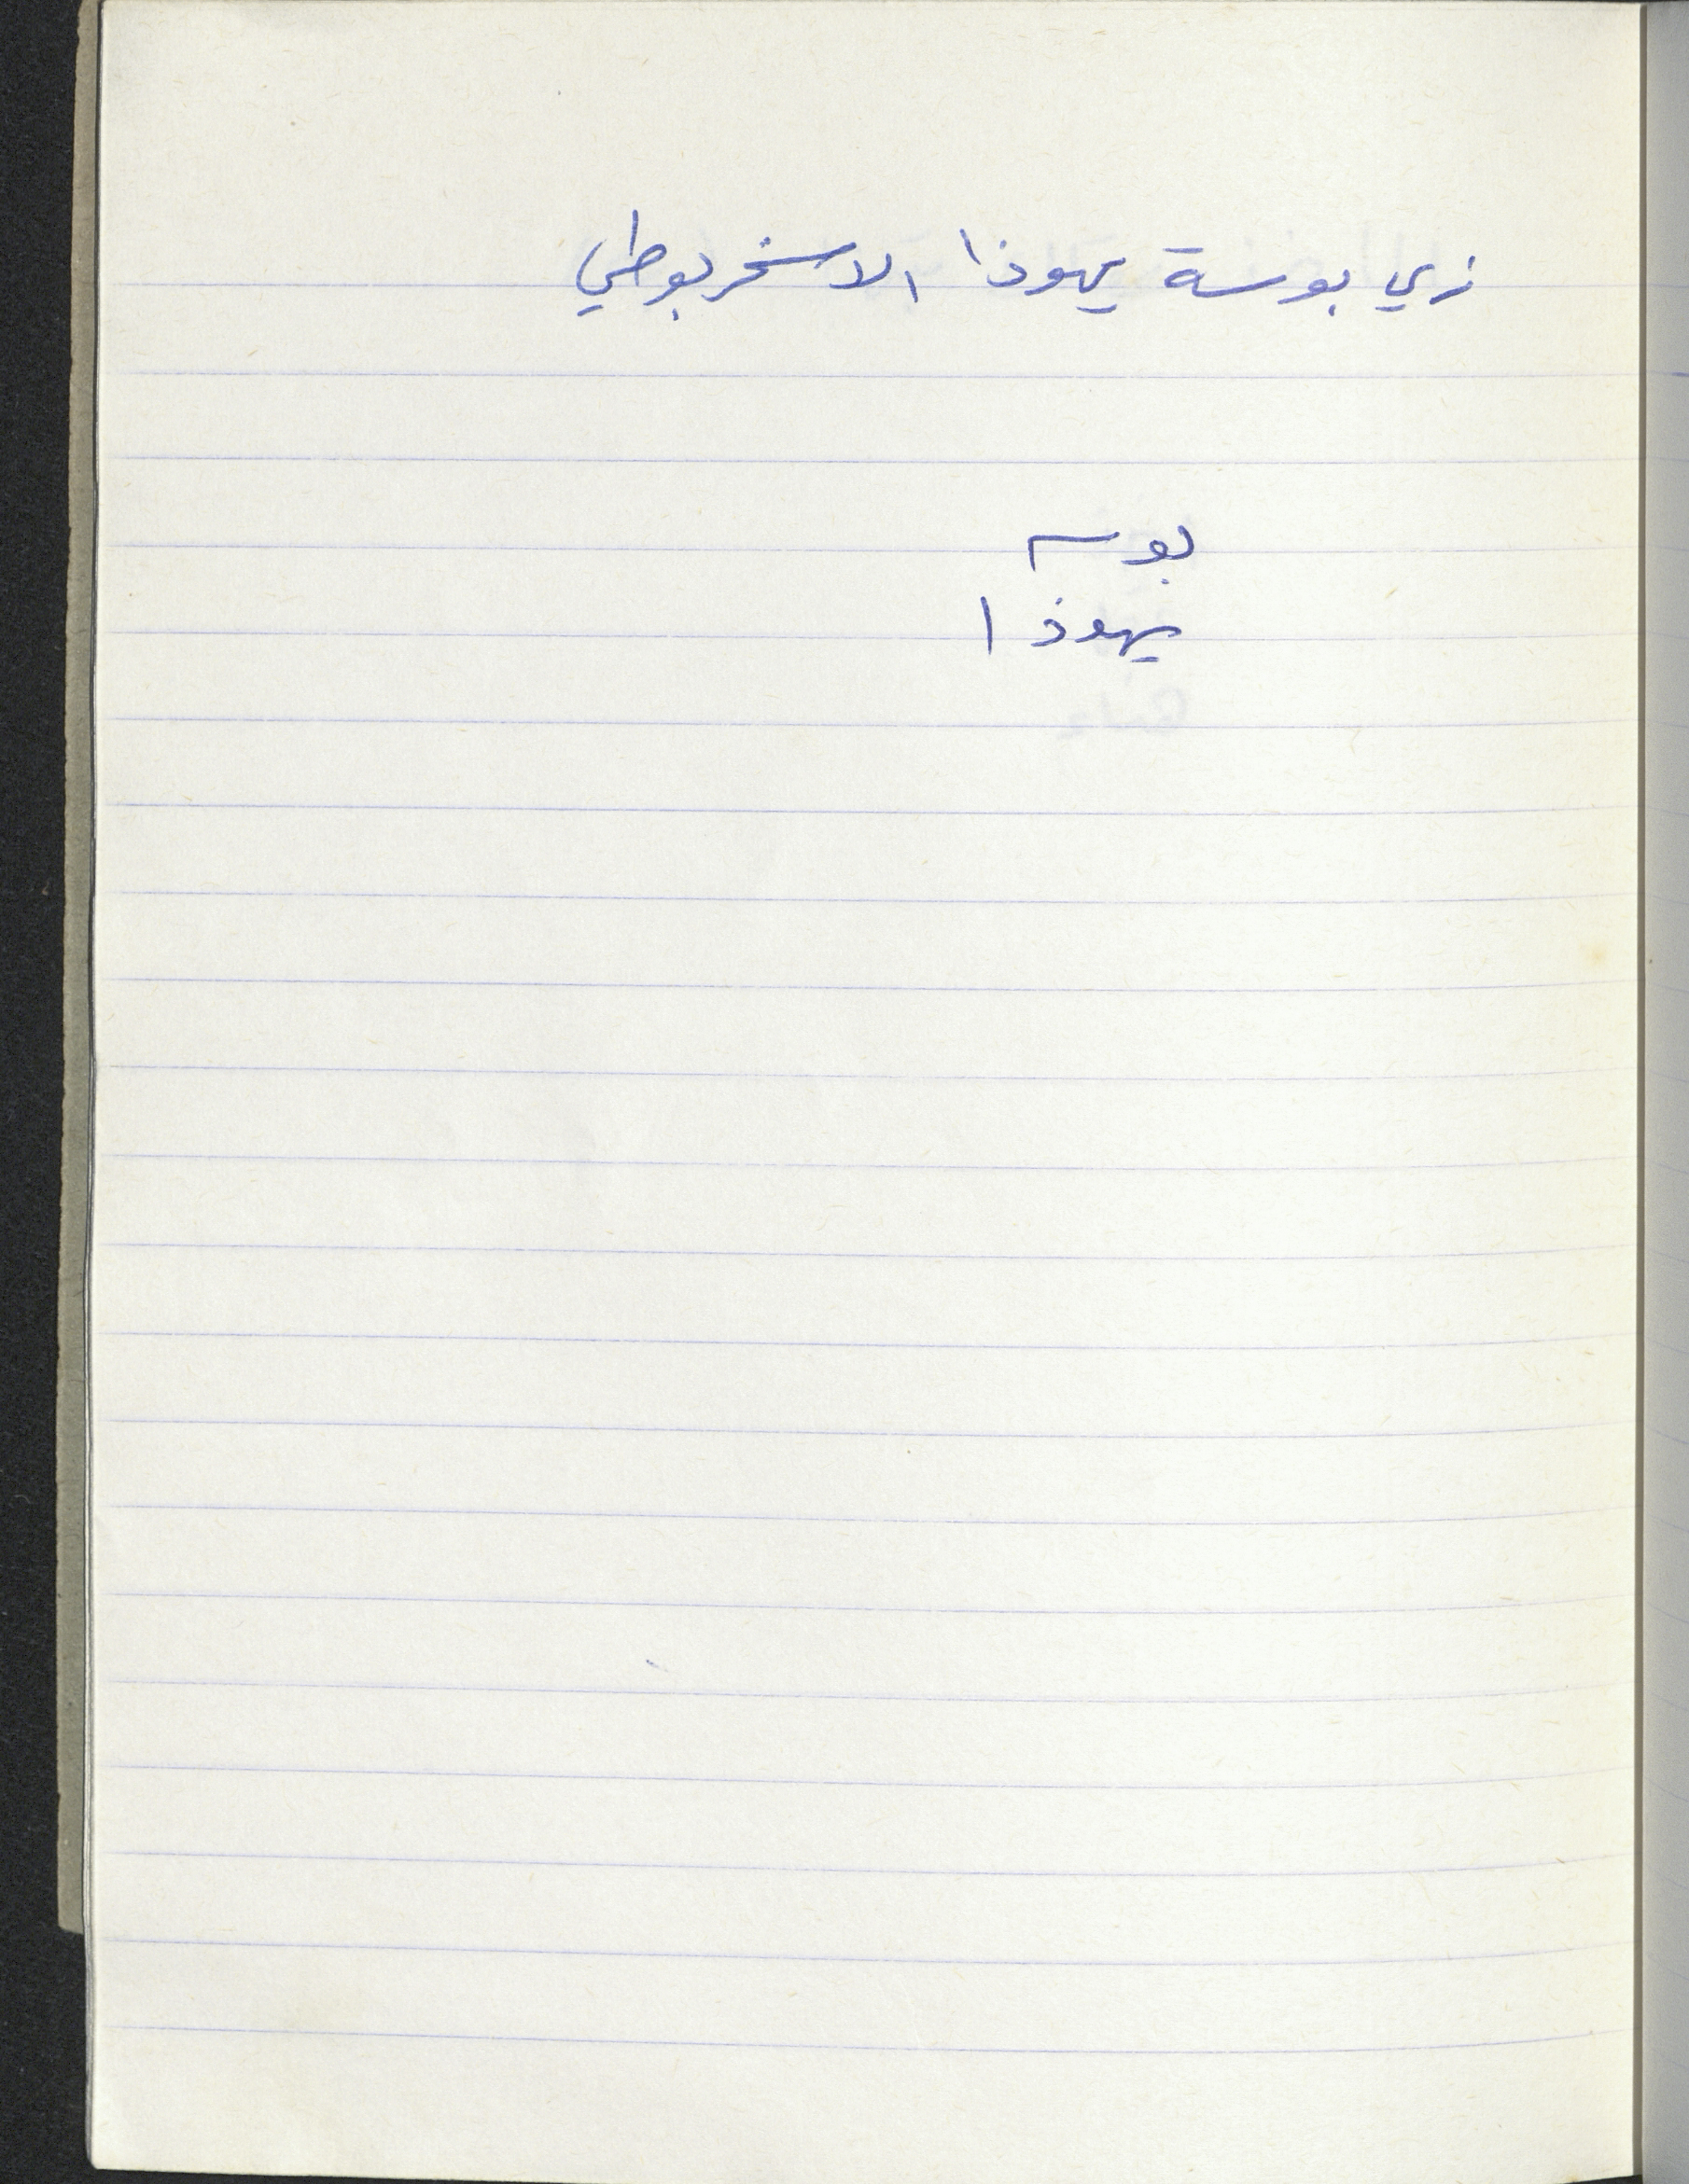 زي بوسة يهوذا الاسخربوطي
بوسه
يهوذا